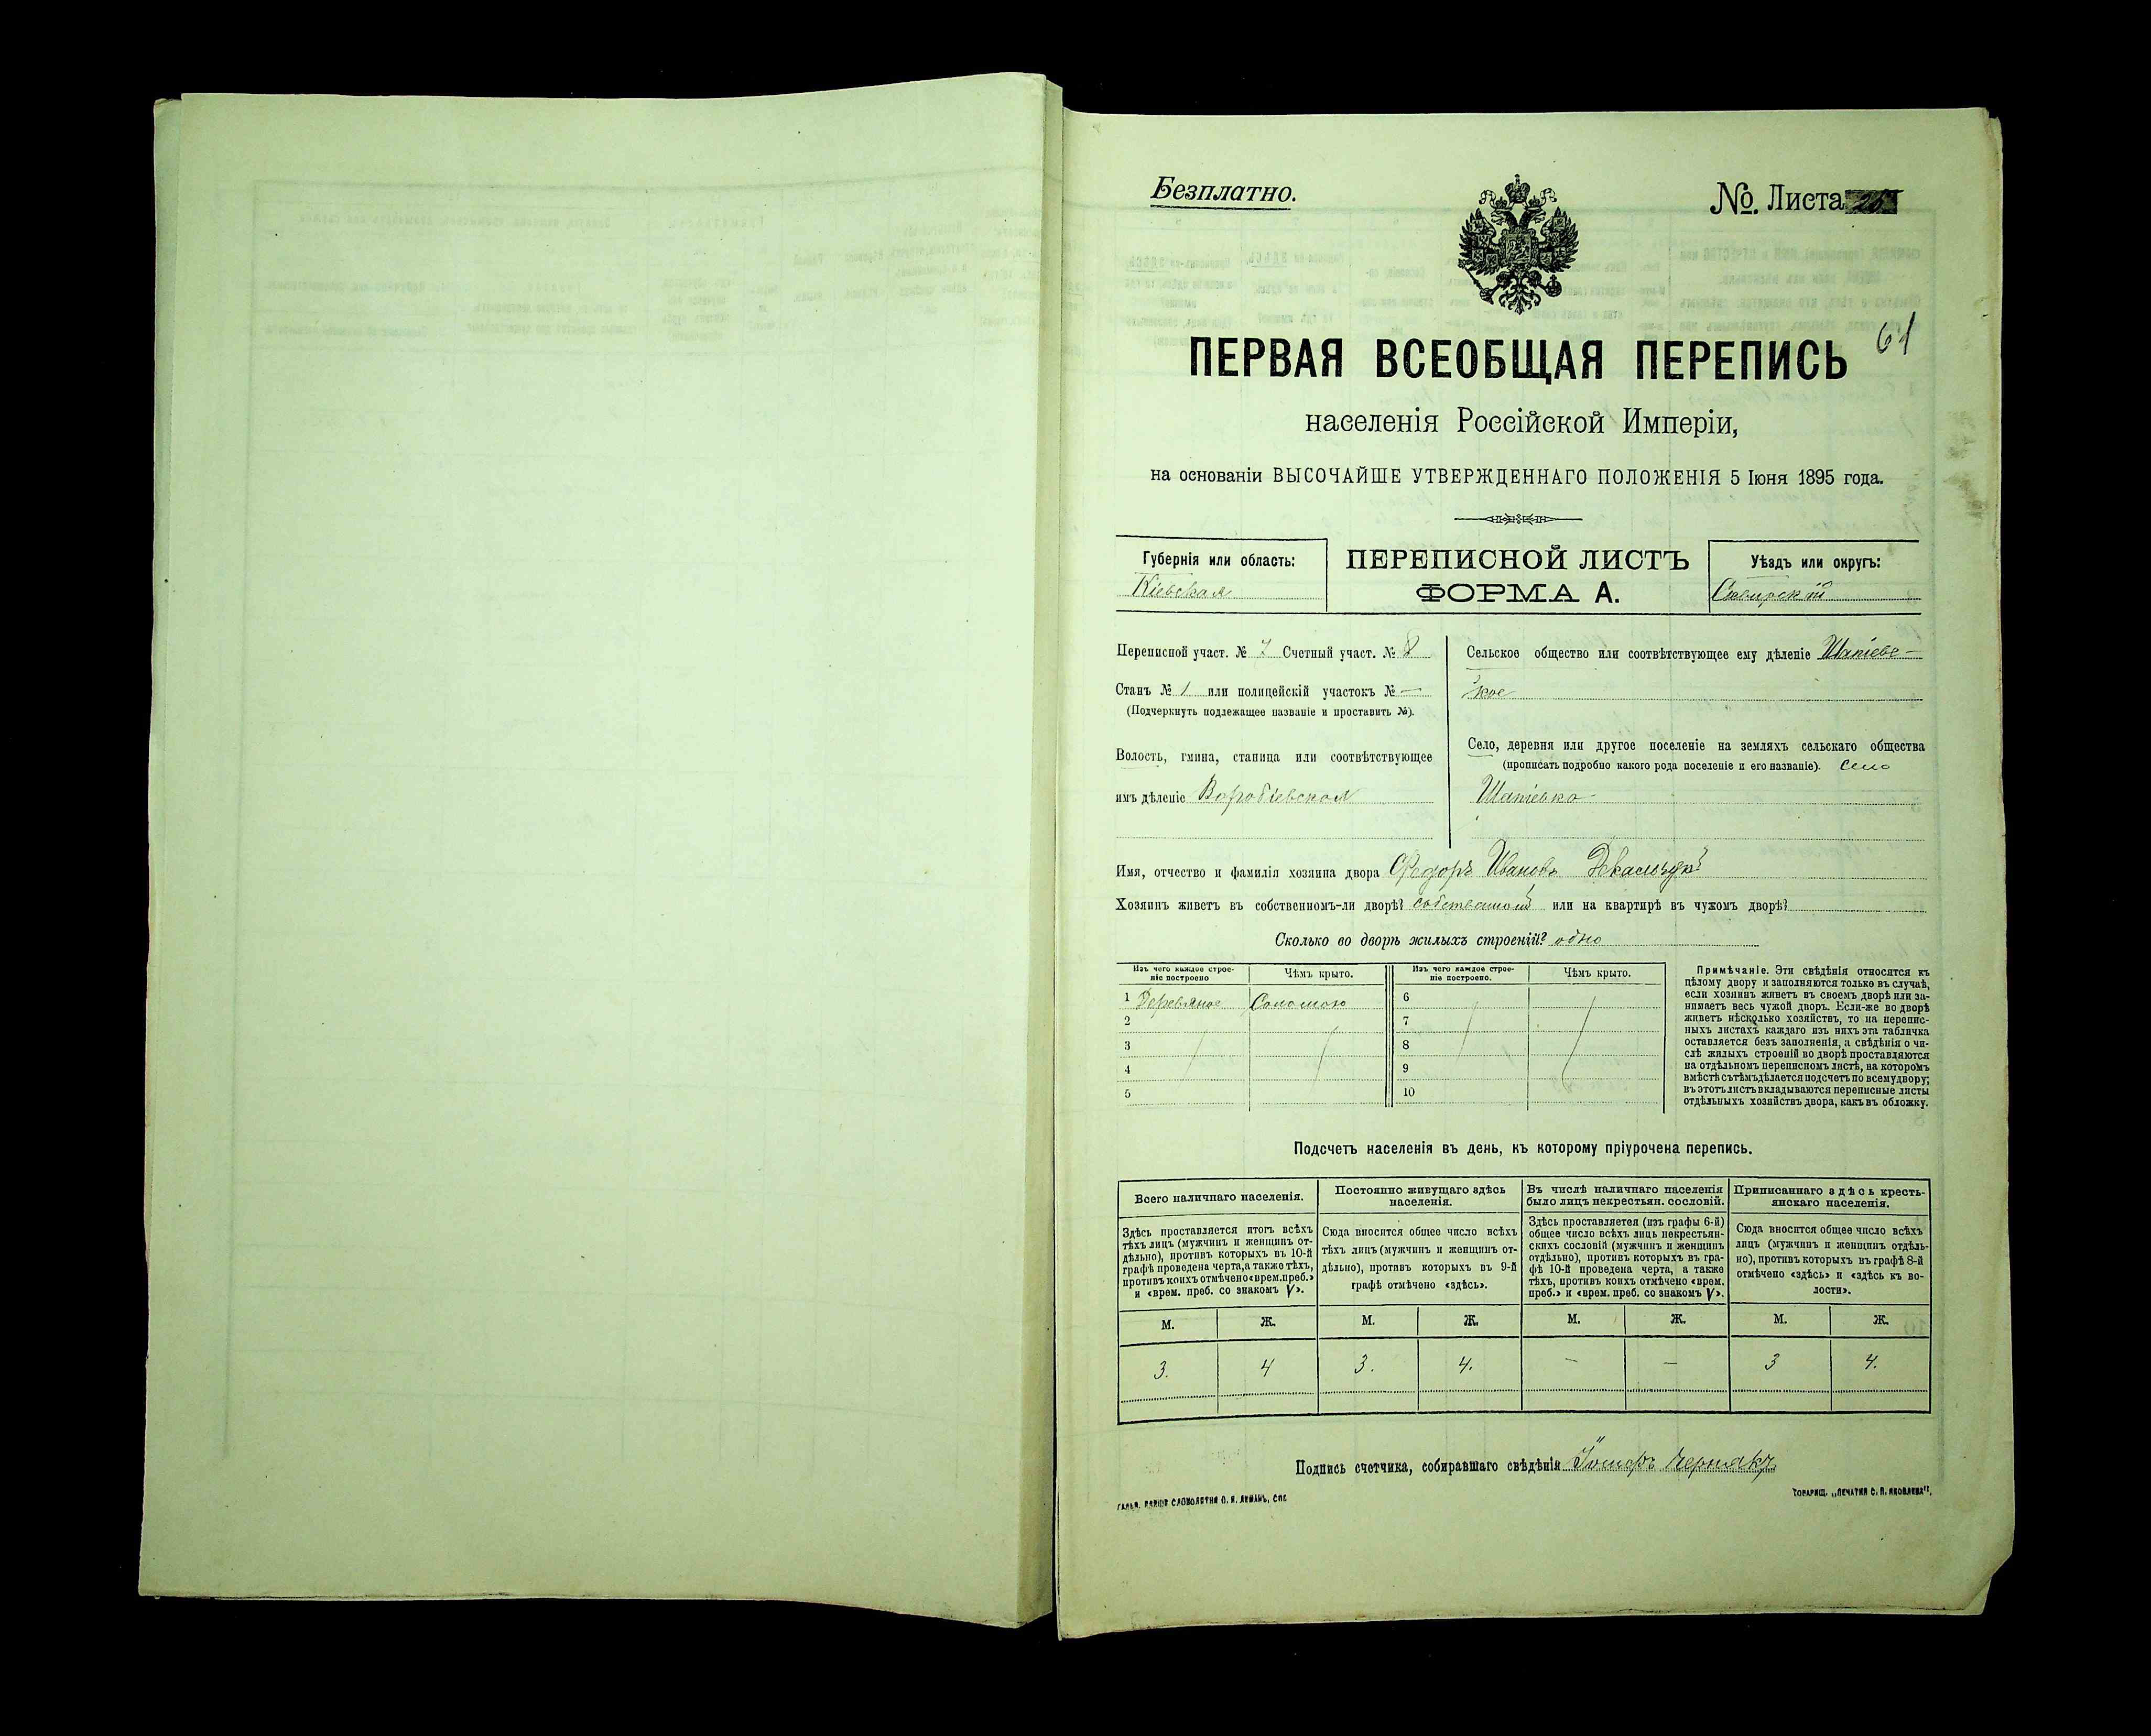 Безплатно.
№. Листа 25
61
ПЕРВАЯ ВСЕОБЩАЯ ПЕРЕПИСЬ
населенія Россійской Имперіи,
на основаніи ВЫСОЧАЙШЕ УТВЕРЖДЕННАГО ПОЛОЖЕНІЯ 5 Іюня 1895 года.
Губернія или область:
Кіевская
ПЕРЕПИСНОЙ ЛИСТЪ
ФОРМА А.
Уѣздъ или округъ:
Сквирскій
Переписной участ. № 7 Счетный участ. № 8
Станъ № 1 или полицейскій участокъ № —
(Подчеркнуть подлежащее названіе и проставить №).
Волость, гмина, станица или соотвѣтствующее
имъ дѣленіе Воробіевская
Сельское общество или соотвѣтствующее ему дѣленіе Шапіевс-
кое
Село, деревня или другое поселеніе на земляхъ сельскаго общества
(прописать подробно какого рода поселеніе и его названіе). село
Шапіевка
Имя, отчество и фамилія хозяина двора Федоръ Ивановъ
Хозяинъ живетъ въ собственномъ-ли дворѣ? собственной или на квартирѣ въ чужомъ дворѣ?
Сколько во дворѣ жилыхъ строеній? одно
Изъ чего каждое строе-
ніе построено
Чѣмъ крыто.
Изъ чего каждое строе-
ніе построено.
Чѣмъ крыто.
1 Деревяное Соломою 6
2 7
3 8
4 9
5 10
Примѣчаніе. Эти свѣдѣнія относятся къ
цѣлому двору и заполняются только въ случаѣ,
если хозяинъ живетъ въ своемъ дворѣ или за-
нимаетъ весь чужой дворъ. Если-же во дворѣ
живетъ нѣсколько хозяйствъ, то на перепис-
ныхъ листахъ каждаго изъ нихъ эта табличка
оставляется безъ заполненія, а свѣдѣнія о чи-
слѣ жилыхъ строеній во дворѣ проставляются
на отдѣльномъ переписномъ листѣ, на которомъ
вмѣстѣ съ тѣмъ дѣлается подсчетъ по всему двору;
въ этотъ листъ вкладываются переписные листы
отдѣльныхъ хозяйствъ двора, какъ въ обложку.
Подсчетъ населенія въ день, къ которому пріурочена перепись.
Всего наличнаго населенія.
Здѣсь проставляется итогъ всѣхъ
тѣхъ лицъ (мужчинъ и женщинъ от-
дѣльно), противъ которыхъ въ 10-й
графѣ проведена черта, а также тѣхъ,
противъ коихъ отмѣчено «врем. преб.»
и «врем. преб. со знакомъ V».
Постоянно живущаго здѣсь
населенія.
Сюда вносится общее число всѣхъ
тѣхъ лицъ (мужчинъ и женщинъ от-
дѣльно), противъ которыхъ въ 9-й
графѣ отмѣчено «здѣсь».
Въ числѣ наличнаго населенія
было лицъ некрестьян. сословій.
Здѣсь проставляется (изъ графы 6-й)
общее число всѣхъ лицъ некрестьян-
скихъ сословій (мужчинъ и женщинъ
отдѣльно), противъ которыхъ въ гра-
фѣ 10-й проведена черта, а также
тѣхъ, противъ коихъ отмѣчено «врем.
преб.» и «врем. преб. со знакомъ V».
Приписаннаго здѣсь кресть-
янскаго населенія.
Сюда вносится общее число всѣхъ
лицъ (мужчинъ и женщинъ отдѣль-
но), противъ которыхъ въ графѣ 8-й
отмѣчено «здѣсь» и «здѣсь къ во-
лости».
М. Ж. М. Ж. М. Ж. М. Ж.
3. 4 3. 4. — — 3 4.
Подпись счетчика, собиравшаго свѣдѣнія Чернякъ
ТОВАРИЩ. „ПЕЧАТНЯ С. П. ЯКОВЛЕВА".